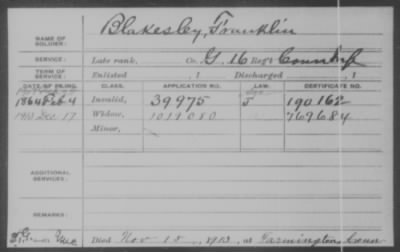 Blakesley, Franklin
NAME OF SOLDIER:
SERVICE: Late rank, Co. G, 16 Reg't Conn Inf
TERM OF SERVICE: Enlisted , 1 Discharged , 1
DATE OF FILING. CLASS. APPLICATION NO. LAW. CERTIFICATE NO.
1864 Feb 4 Invalid, 39975 190162
1913 Dec. 17 Widow, 1019080 769684
Minor,
ADDITIONAL SERVICES:
REMARKS:
Died Nov 15, 1913, at Farmington, Conn